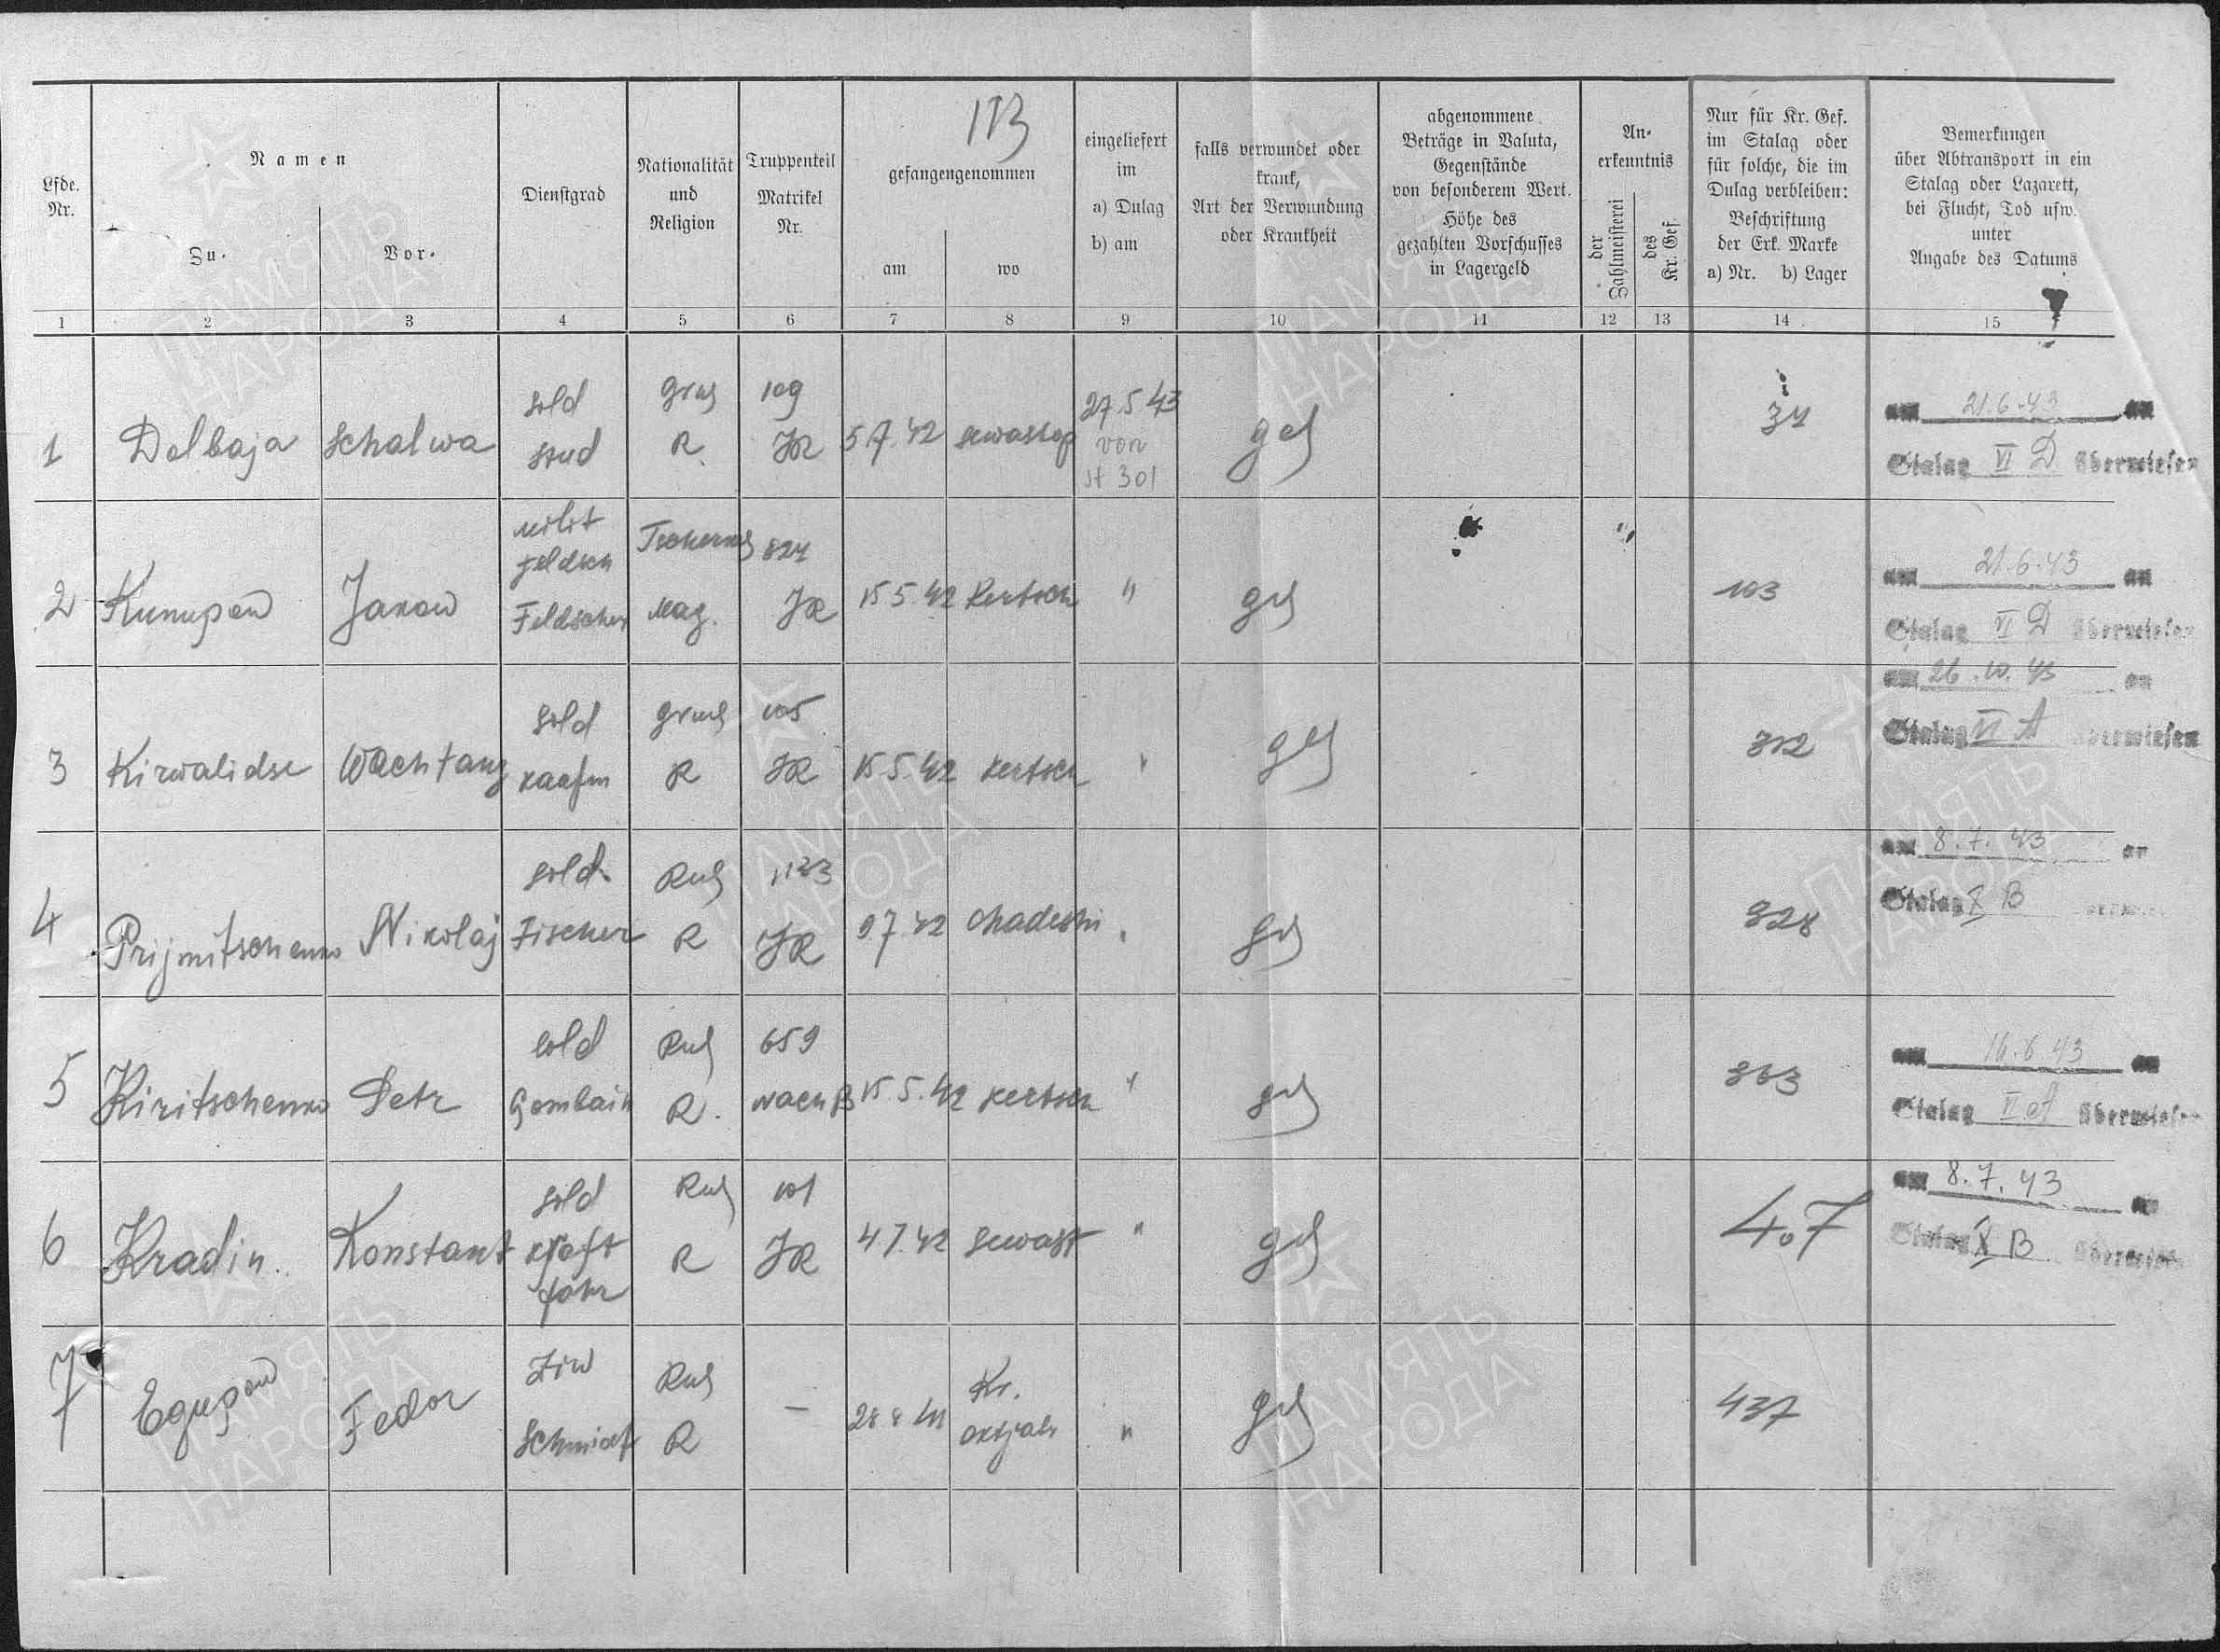 IIB
Lfde. Nr.
Namen
Zu-
Vor-
Dienstgrad
Nationalität und Religion
Truppenteil Matrikel Nr.
gefangengenommen
am
wo
eingeliefert im a) Dulag b) am
falls verwundet oder krank, Art der Verwundung oder Krankheit
abgenommene Beträge in Valuta, Gegenstände von besonderem Wert. Höhe des gezahlten Vorschusses in Lagergeld
An-erkenntnis
der Zahlmeisterei
des Kr. Gef.
Nur für Kr. Gef. im Stalag oder für solche, die im Dulag verbleiben: Beschriftung der Erk. Marke a) Nr. b) Lager
Bemerkungen über Abtransport in ein Stalag oder Lazarett, bei Flucht, Tod usw. unter Angabe des Datums
1 2 3 4 5 6 7 8 9 10 11 12 13 14 15
1 Dolbaja Schalwa sold stud Grus R 109 JR 5.7.42 sewastop 27.5.43 von st 301 ges 31 am 21.6.43 an Stalag VI D überwiesen
2 Kunupow Jakow milit feldsch Feldscher 824 JR 15.5.42 Kertsch " ges 103 am 21.6.43 an Stalag VI D überwiesen
3 Kirwalidse Wachtang sold kaufm grus R 105 JR 15.5.42 kertsch " ges 312 am 26.10.43 an Stalag VI A überwiesen
4 Prijmitschenko Nikolaj sold Fischer Rus R 1133 JR 9.7.42 " ges 328 am 8.7.43 an Stalag X B
5 Kiritschenko Petr sold Combain Rus R. 659 15.5.42 kertsch " ges 363 am 16.6.43 an Stalag überwiesen
6 Kradin Konstant sold kraft fahr Rus R 101 JR 4.7.42 Sewast " ges 4.7 am 8.7.43 an Stalag X B überwiesen
7 Egupow Fedor Ziw Schmied Rus R – Kr. " ges 437
ПАМЯТЬ НАРОДА
ПАМЯТЬ НАРОДА
ПАМЯТЬ НАРОДА
ПАМЯТЬ НАРОДА
ПАМЯТЬ НАРОДА
ПАМЯТЬ НАРОДА